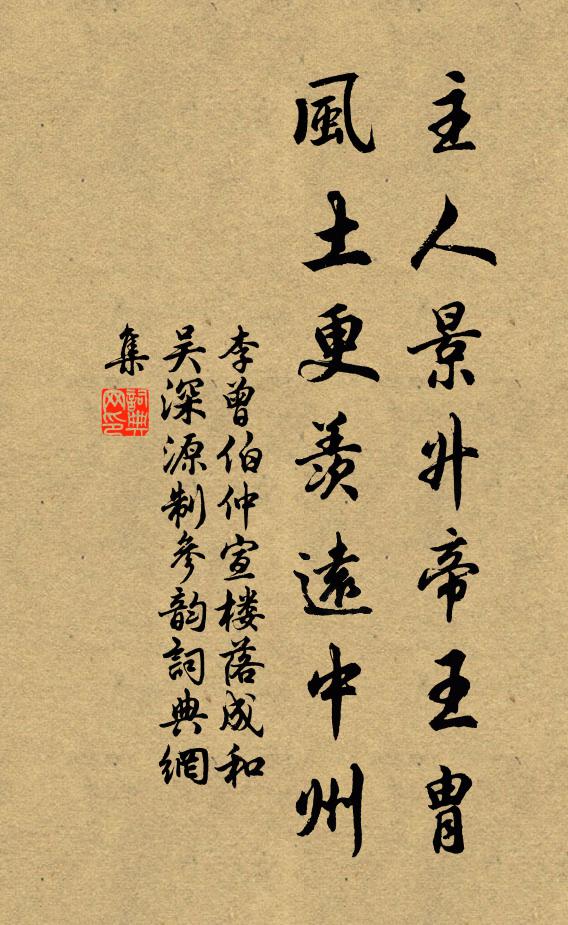 主人景升帝王胄
風土更羨遠中州
李曾伯仲宣楼落成和
吴深源制參韵詞典網
集
詞典網印